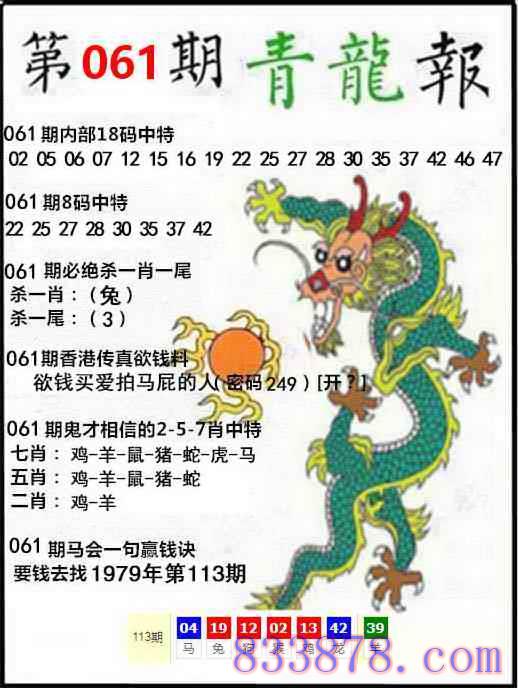 第061期青龍報
061期内部18码中特
02 05 06 07 12 15 16 19 22 25 27 28 30 35 37 42 46 47
061期8码中特
22 25 27 28 30 35 37 42
061期必绝杀一肖一尾
杀一肖：（兔）
杀一尾：（3）
061期香港传真欲钱料
欲钱买爱拍马屁的人（密码249）[开?]
061期鬼才相信的2-5-7肖中特
七肖：鸡-羊-鼠-猪-蛇-虎-马
五肖：鸡-羊-鼠-猪-蛇
二肖：鸡-羊
061期马会一句赢钱诀
要钱去找1979年第113期
113期 04 19 12 02 13 42 39
马 兔 狗 猴 鸡 龙 羊
833878.com